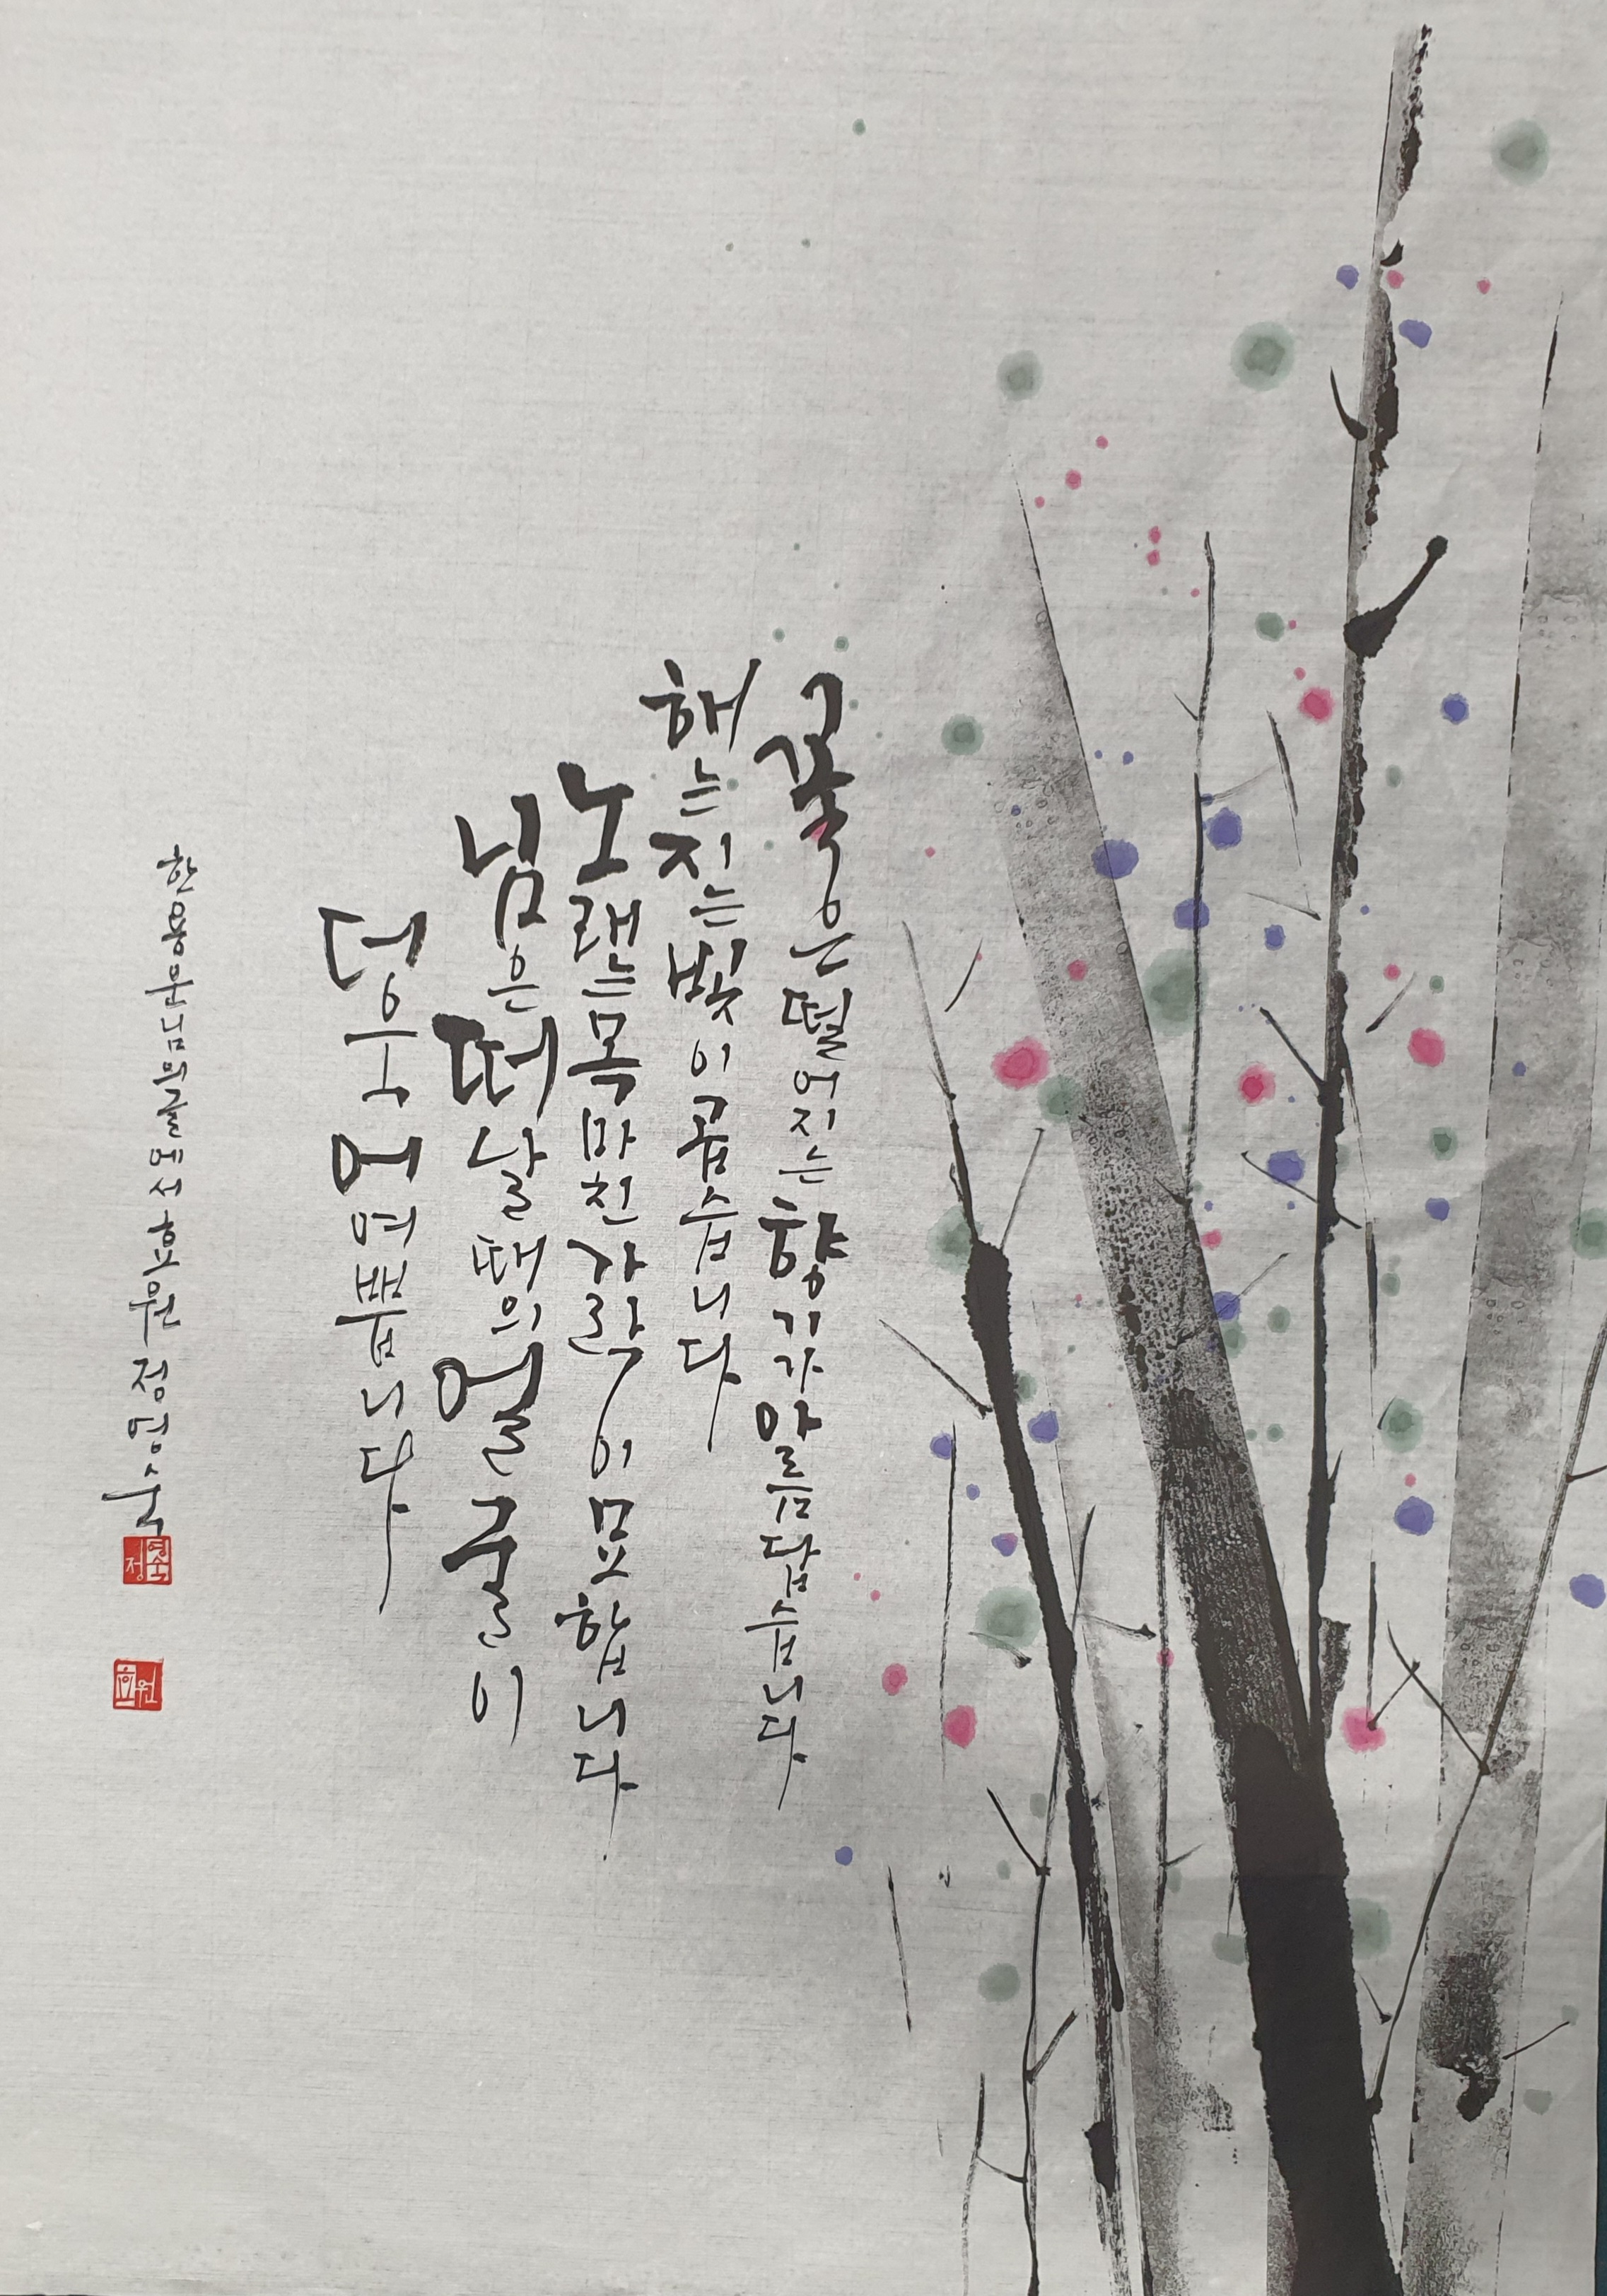 꽃은 떨어지는 향기가 아름답습니다
해는 지는 빛이 곱습니다
노래는 목마친 가락이 묘합니다
님은 떠날 때의 얼굴이
더욱 어여쁩니다
한용운님의 글에서 효원 정영숙
정영숙
효원